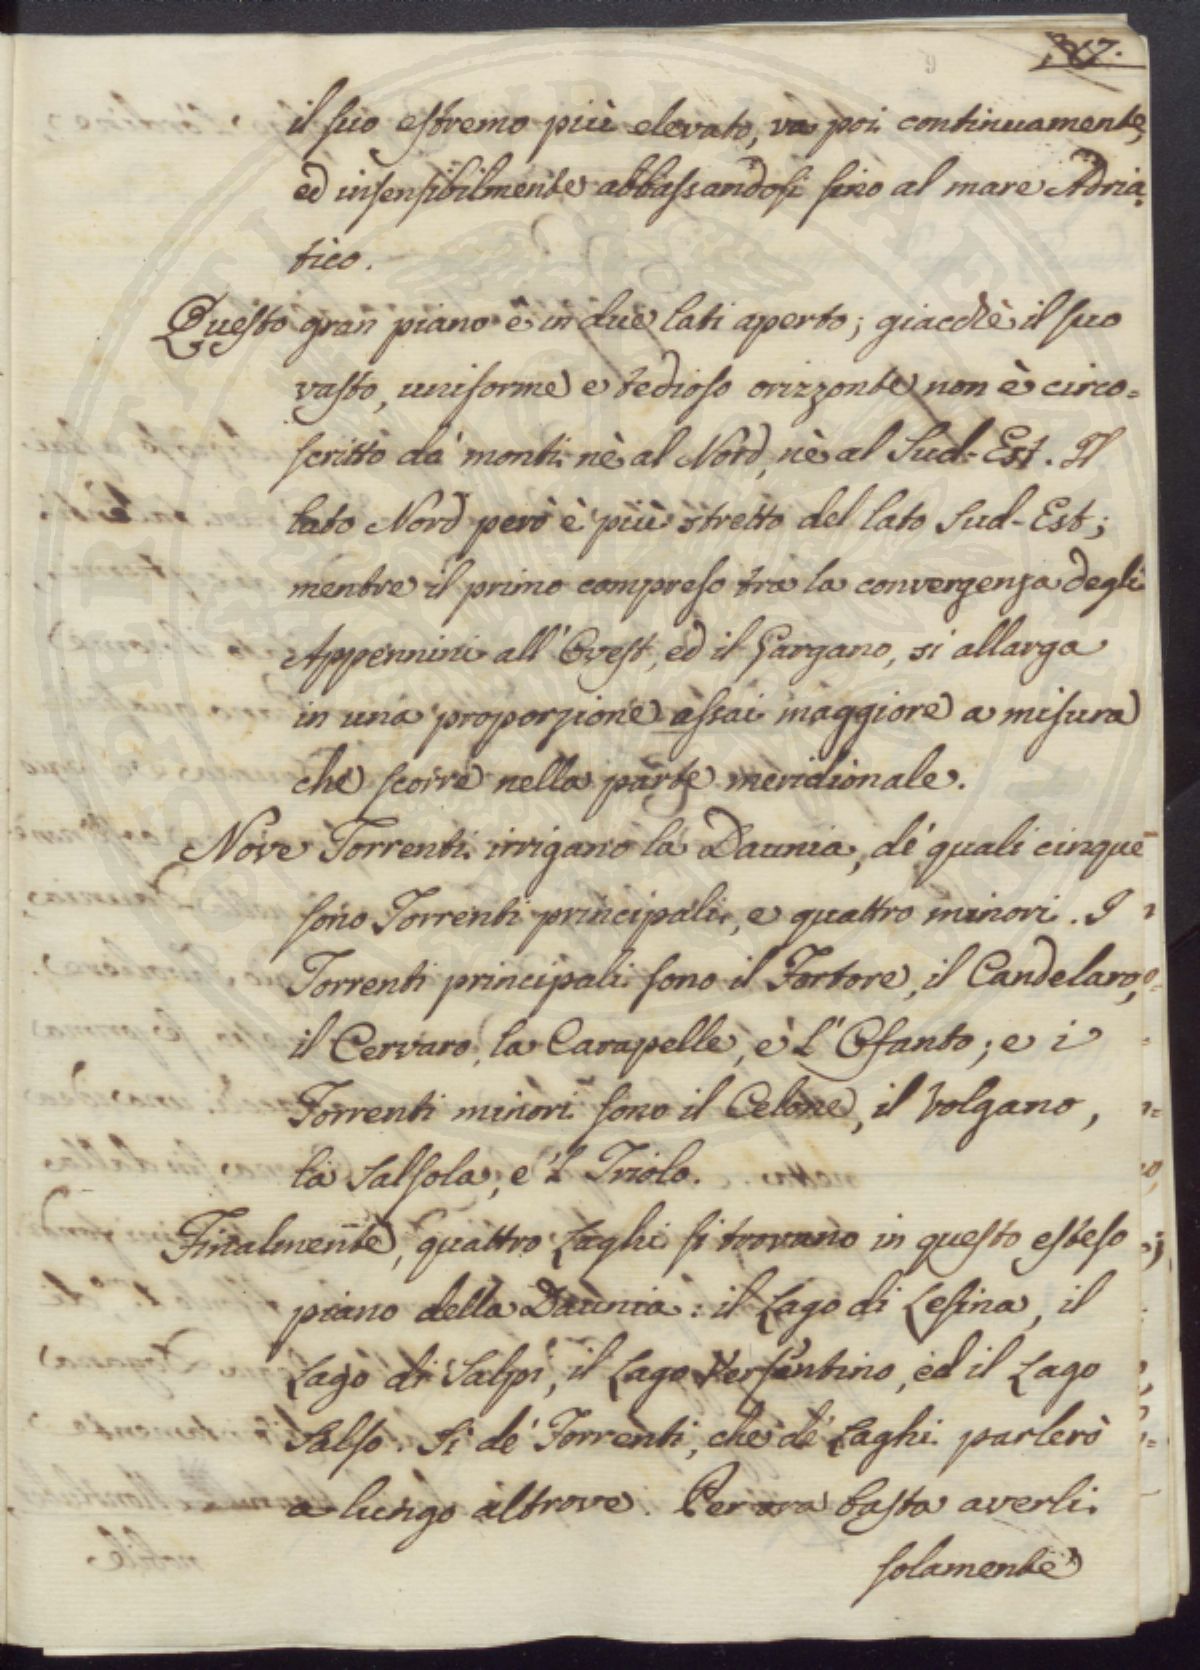 il suo estremo più elevato, va poi continuamente,
ed insensibilmente abbassandosi sino al mare Adria=
tico.
Questo gran piano è in due lati aperto; giacchè il suo
vasto, uniforme e tedioso orizzonte non è circo=
scritto da' monti nè al Nord, nè al Sud-Est. Il
lato Nord però è più stretto del lato Sud-Est;
mentre il primo compreso tra la convergenza degli
Appennini all'Ovest, ed il Gargano, si allarga
in una proporzione assai maggiore a misura
che scorre nella parte meridionale.
Nove Torrenti irrigano la Daunia, de' quali cinque
sono Torrenti principali, e quattro minori. I
Torrenti principali sono il Fortore, il Candelaro,
il Cervaro, la Carapelle, e l'Ofanto; e i
Torrenti minori sono il Celone, il Volgano,
la Salsola, e 'l Triolo.
Finalmente, quattro Laghi si trovano in questo esteso
piano della Daunia: il Lago di Lesina, il
Lago di Salpi, il Lago Versentino, ed il Lago
Salso. Sì de' Torrenti, che de' Laghi parlerò
a lungo altrove. Per ora basta averli
solamente